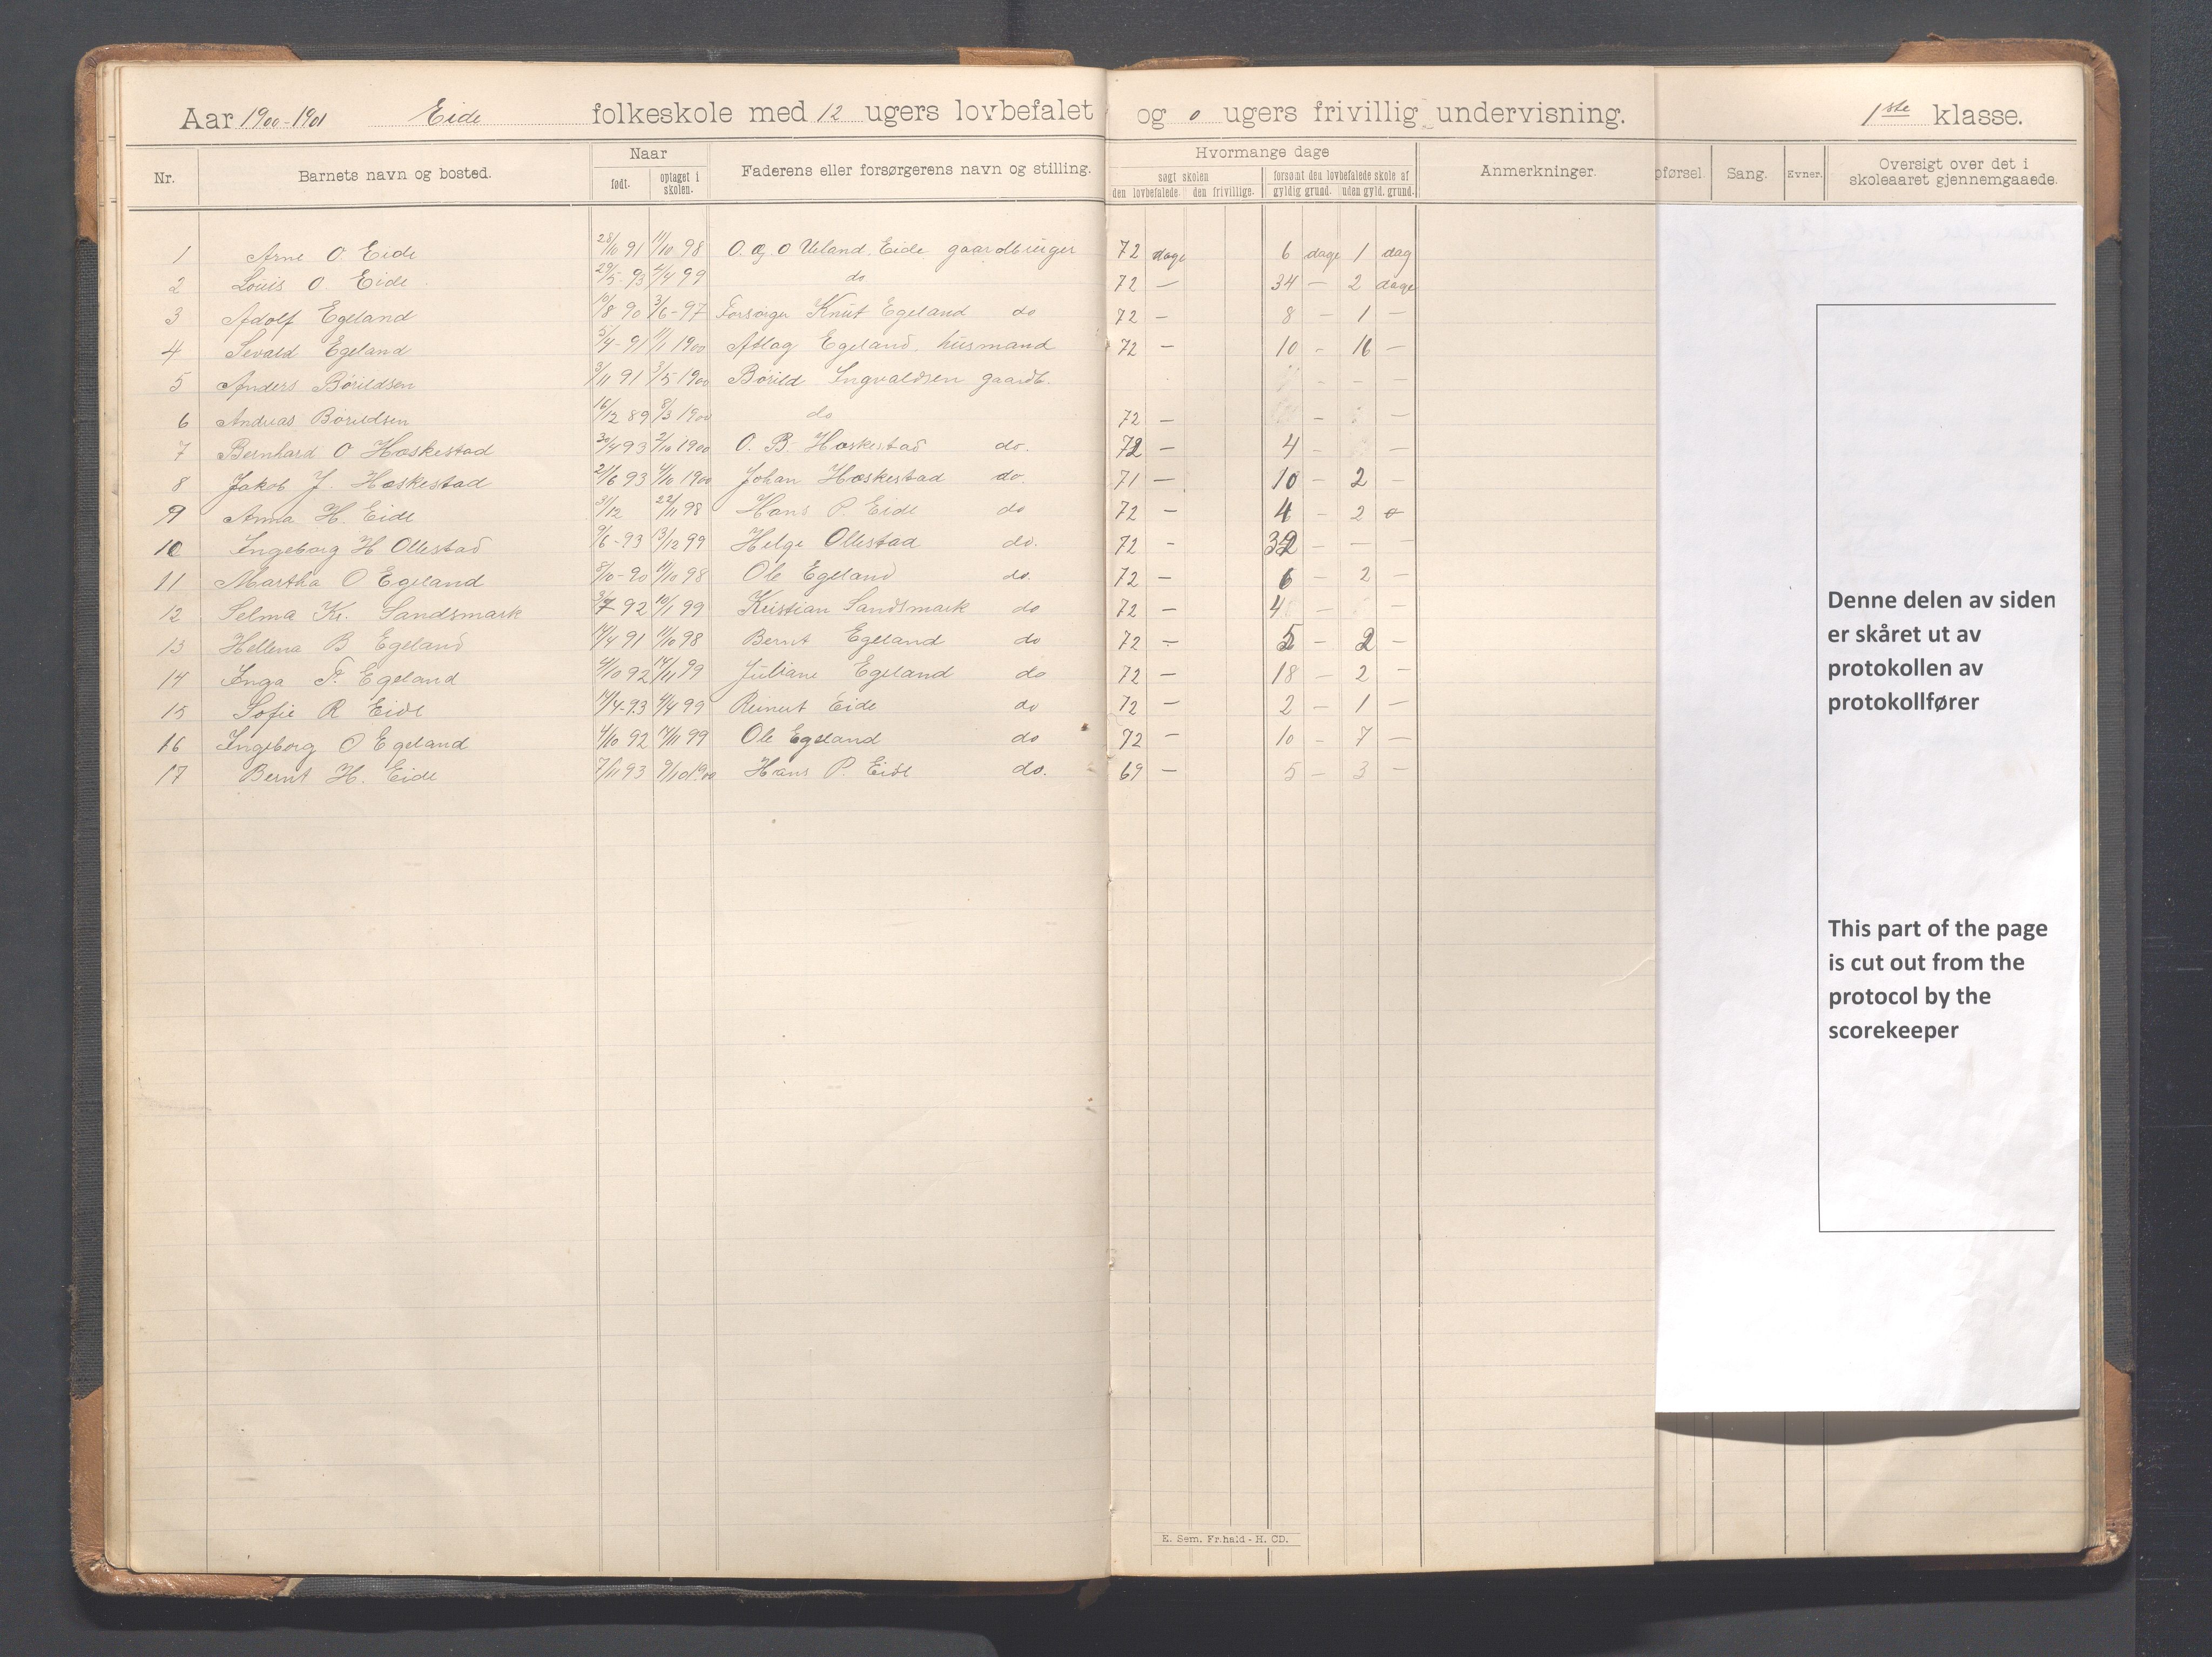 Aar 1900-1901 Eide folkeskole med 12 ugers lovbefalet og 0 ugers frivillig undervisning. 1ste klasse.
Nr. Barnets navn og bosted. Naar født. optaget i skolen. Faderens eller forsørgerens navn og stilling. Hvormange dage søgt skolen den lovbefalede. den frivillige. forsømt den lovbefalede skole af gyldig grund. uden gyld. grund. Anmerkninger. pførsel. Sang. Evner. Oversigt over det i skoleaaret gjennemgaaede.
1 Arne O Eide 28/10 91 11/10 98 O. og O Ueland, Eide gaardbruger 72 dage 6 dage 1 dag
2 Louis O. Eide 29/5-93 4/4 99 do 72 — 34 — 2 dage
3 Adolf Egeland 10/8 90 3/6-97 Forsørger Knut Egeland do 72 — 8 — 1 —
4 Sevald Egeland 5/4-91 11/1 1900 Aslag Egeland, husmand 72 — 10 - 16 —
5 Anders Børildsen 3/11 91 3/5 1900 Børild Ingvaldsen gaardb. - — —
6 Andreas Børildsen 16/12 89 8/3 1900 do 72 — — —
7 Bernhard O Hæskestad 30/4 93 2/10 1900 O. B. Hæskestad do. 72 — 4 - —
8 Jakob J. Hæskestad 21/6 93 4/10 1900 Johan Hæskestad do. 71 — 10 — 2 —
9 Anna H. Eide 31/12 22/11 98 Hans P. Eide do 72 — 4 - 2
10 Ingeborg H Ollestad 9/6-93 13/12 99 Helge Ollestad do. 72 - 32 — — —
11 Martha O Egeland 8/10-90 11/10 98 Ole Egeland do. 72 — 6 — 2 —
12 Selma Kr. Sandsmark 92 10/1 99 Kristian Sandsmark do 72 — 4 — —
13 Hellena B Egeland 14/4 91 11/10 98 Bernt Egeland do 72 — 5 — 2 —
14 Inga T. Egeland 4/10 92 17/11 99 Juliane Egeland do 72 — 18 — 2 —
15 Sofie R Eide 14/4-93 4/4 99 Reinert Eide do 72 — 2 — 1 —
16 Ingeborg O Egeland 4/10 92 17/11 99 Ole Egeland do 72 — 10 — 7 —
17 Bernt H. Eide 7/11 93 9/10 1900 Hans P. Eide do. 69 — 5 — 3 —
Denne delen av siden
er skåret ut av
protokollen av
protokollfører
This part of the page
is cut out from the
protocol by the
scorekeeper
E. Sem, Fr.hald - H. CD.